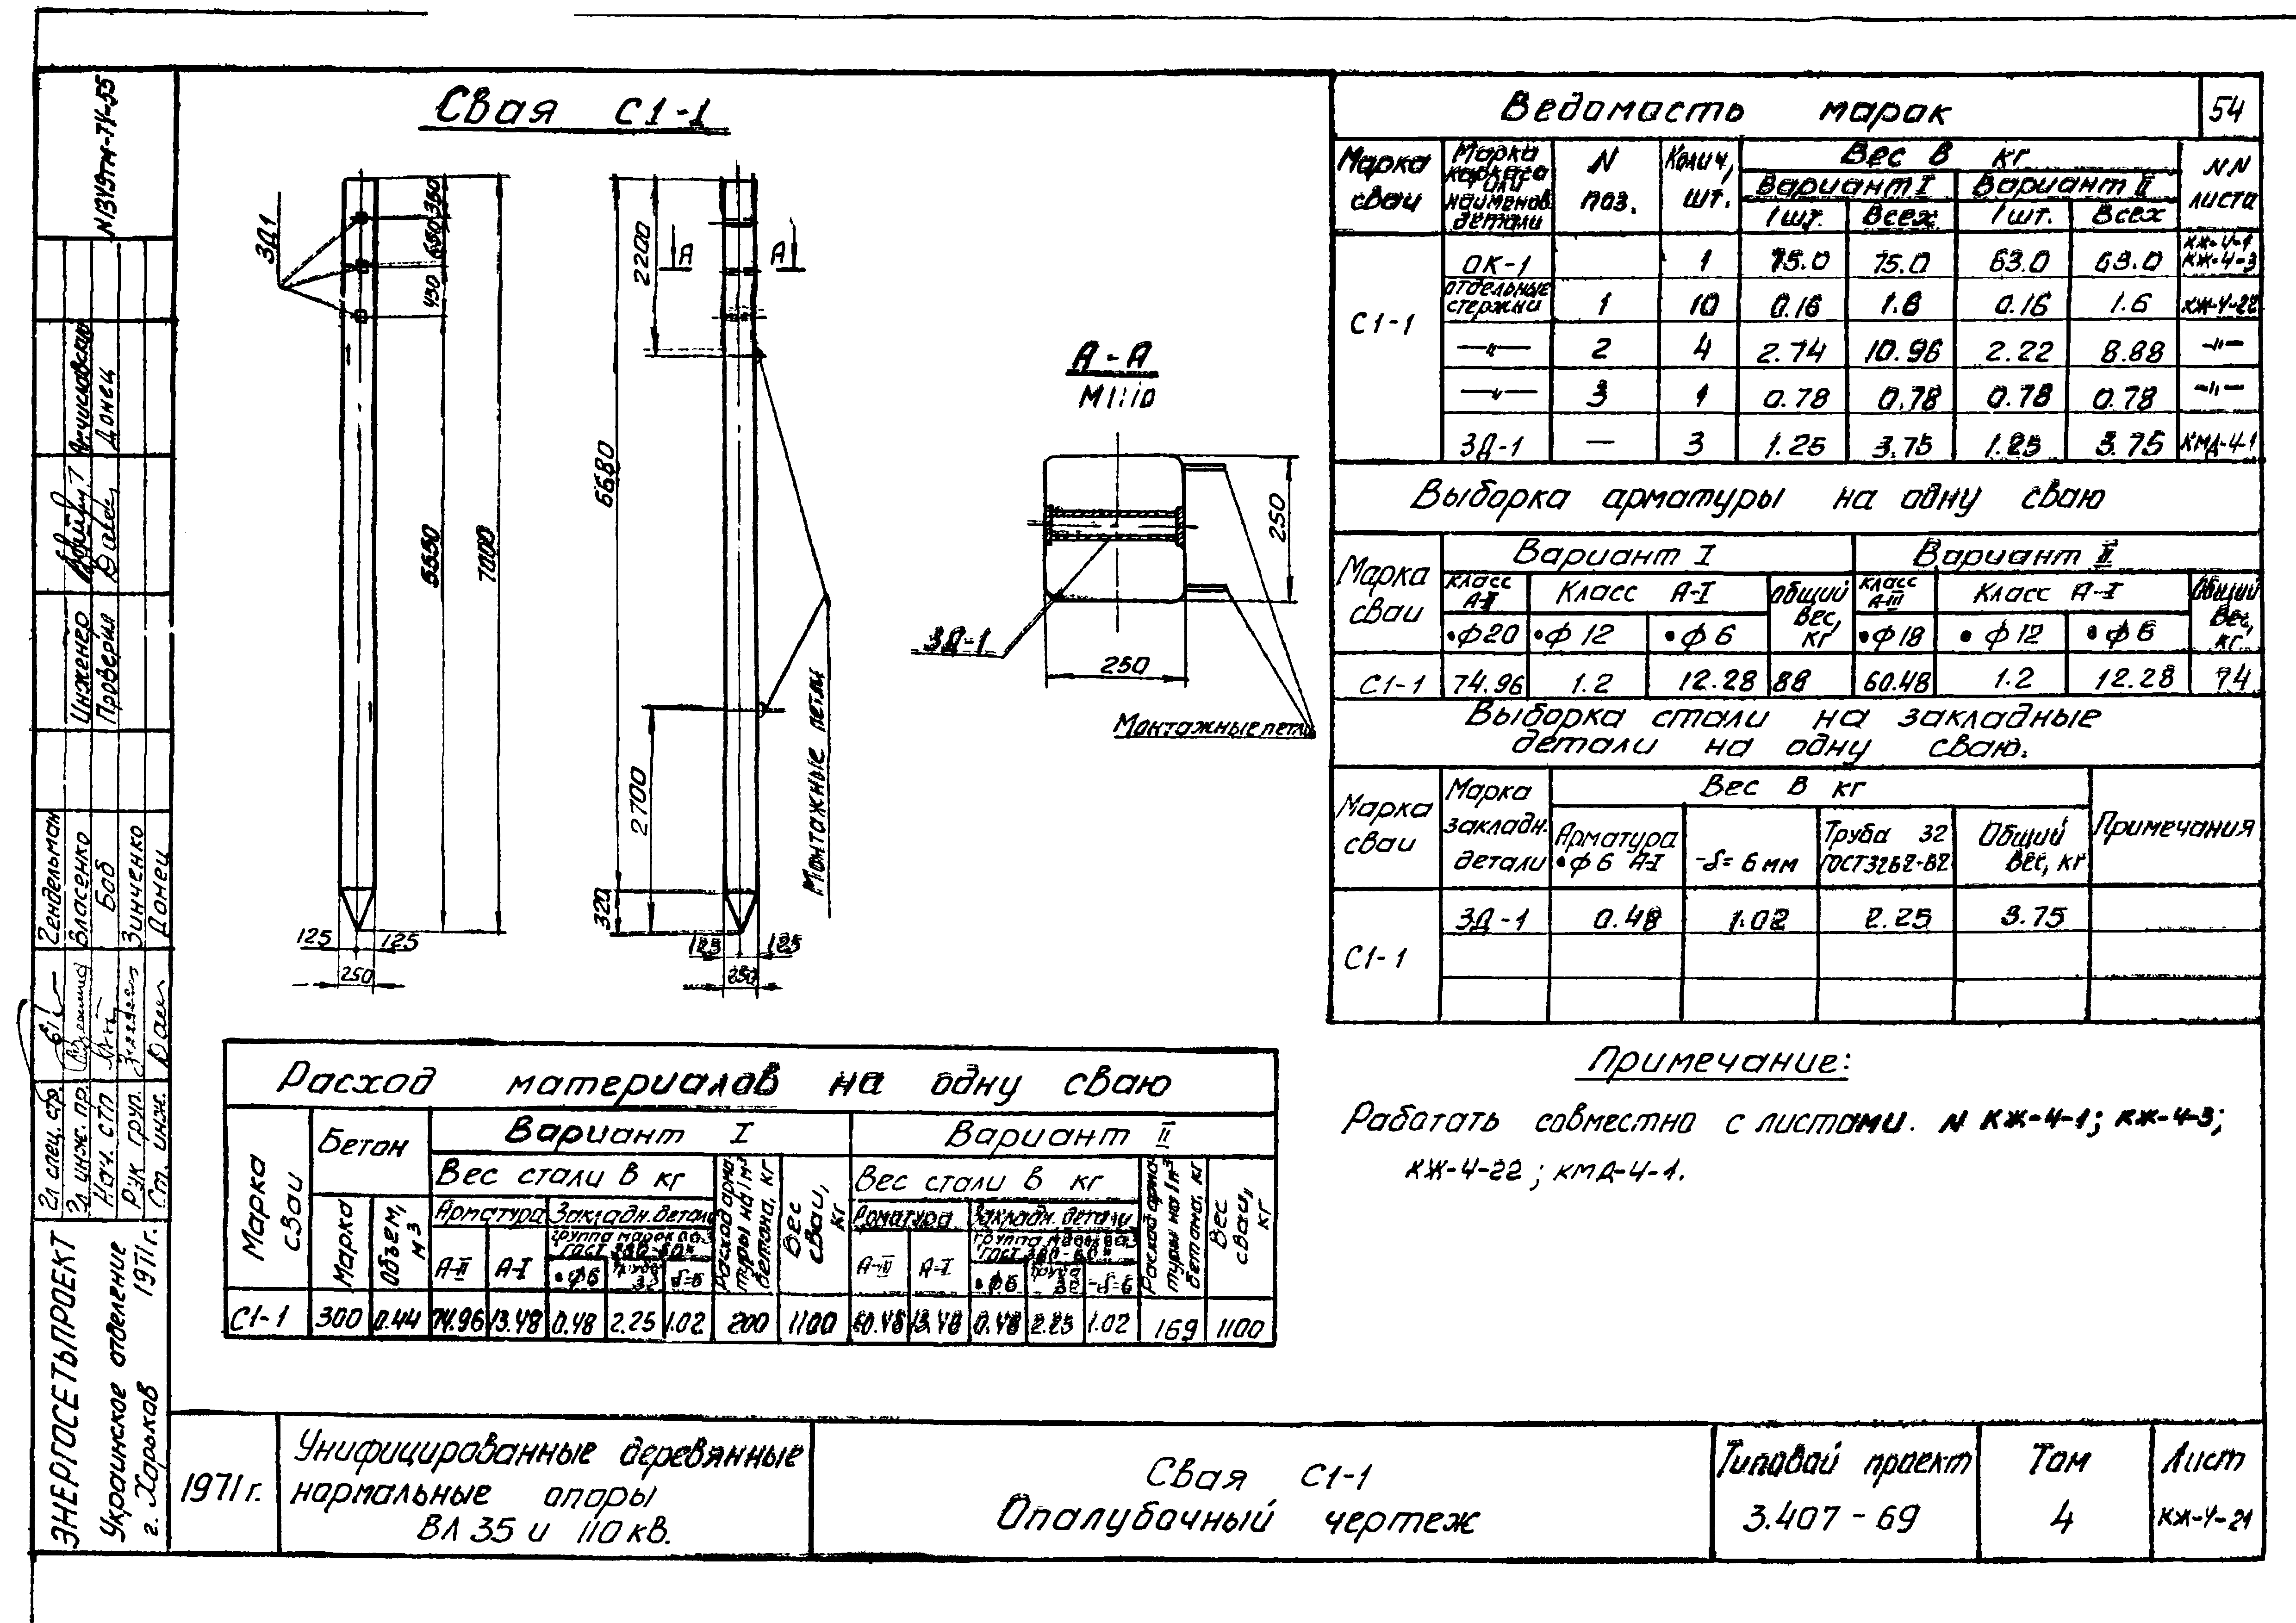 Свая С1-1
ЗД1
350
650
450
5550
7000
2200
6680
2700
320
А А
125 125
250
125 125
250
Монтажные петли
А - А
М1:10
250
250
ЗД-1
Монтажные петли
Ведомасть марак 54
Марка сваи
Марка каркаса или наименов. детали
N поз.
Колич, шт.
Вес в кг
Вариант I Вариант II
1шт. Всех 1шт. Всех
NN листа
С1-1
ОК-1 1 75.0 75.0 63.0 63.0 КЖ-4-1 КЖ-4-3
отдельные стержни 1 10 0.16 1.6 0.16 1.6 КЖ-4-22
—"— 2 4 2.74 10.96 2.22 8.88 —"—
—"— 3 1 0.78 0.78 0.78 0.78 —"—
ЗД-1 — 3 1.25 3.75 1.25 3.75 КМД-4-1
Выборка арматуры на одну сваю
Марка сваи
Вариант I Вариант II
класс А-II Класс А-I Общий вес, кг класс А-III Класс А-I Общий вес, кг.
•ф20 •ф12 •ф6 •ф18 •ф12 •ф6
С1-1 74.96 1.2 12.28 88 60.48 1.2 12.28 74
Выборка стали на закладные
детали на одну сваю.
Марка сваи
Марка закладн. детали
Вес в кг
Примечания
Арматура •ф6 А-I
-δ= 6мм
Труба 32 ГОСТ3262-62
Общий вес, кг
С1-1
ЗД-1 0.48 1.02 2.25 3.75
Примечание:
Работать совместно с листами. N КЖ-4-1; КЖ-4-3;
КЖ-4-22; КМД-4-1.
Расход материалов на одну сваю
Марка сваи
Бетон
Марка
Объем, м³
Вариант I Вариант II
Вес стали в кг
Арматура Закладн. детали
А-II А-I
•ф6 труба 32 -δ=6
Расход арматуры на 1м³ бетона, кг
Вес сваи, кг
Вес стали в кг
Арматура Закладн. детали
А-III А-I
•ф6 труба 32 -δ=6
Расход арматуры на 1м³ бетона, кг
Вес сваи, кг
С1-1 300 0.44 74.96 13.48 0.48 2.25 1.02 200 1100 60.48 13.48 0.48 2.25 1.02 169 1100
1971г.
Унифицированные деревянные
нормальные опоры
ВЛ 35 и 110кв.
Свая С1-1
Опалубочный чертеж
Типовой проект
3.407-69
Том
4
Лист
КЖ-4-21
N1349тм-ТУ-55
Инженер
Проверил Донец
Гл. спец. стр. Гендельман
Гл. инж. пр. Власенко
Нач. СТП Боб
Рук. груп. Зинченко
Ст. инж. Донец
ЭНЕРГОСЕТЬПРОЕКТ
Украинское отделение
г. Харьков 1971г.